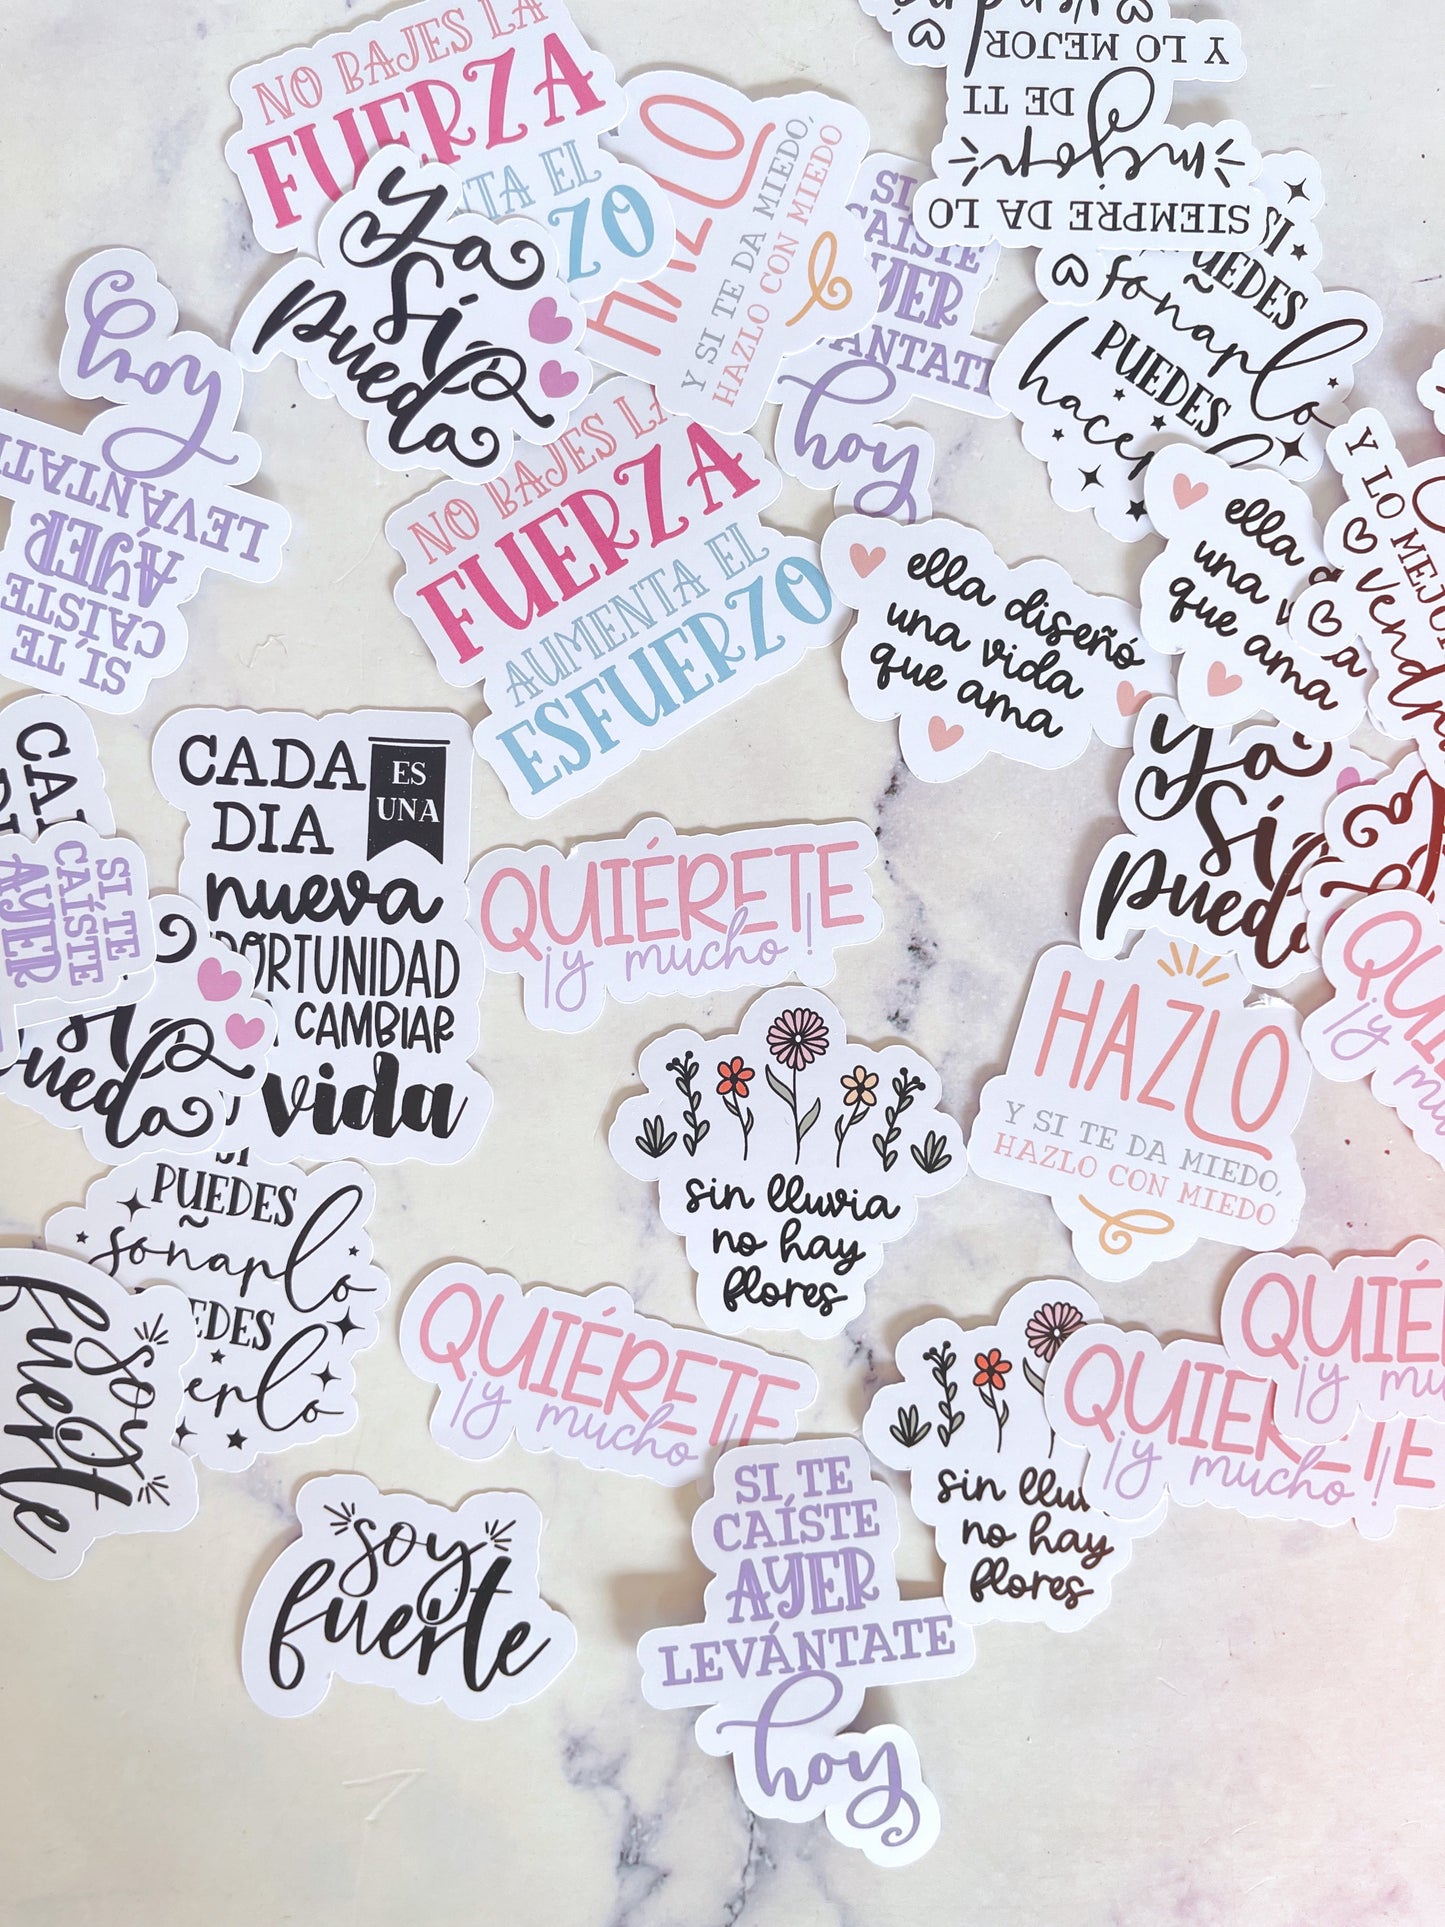 NO BAJES LA
FUERZA
TA EL
ZO
ya
sí
pueda
HAZLO
Y SI TE DA MIEDO,
HAZLO CON MIEDO
SI
CAÍSTE
AYER
VANTATE
hoy
SIEMPRE DA LO
mejor
DE TI
Y LO MEJOR
PUEDES
soñarlo
PUEDES
hacer
hoy
LEVÁNTAT
AYER
CAÍSTE
SI TE
NO BAJES LA
FUERZA
AUMENTA EL
ESFUERZO
ella diseñó
una vida
que ama
ella
una
que ama
Y LO MEJOR
vendrá
ya
sí
pueda
CADA
DIA
ES
UNA
nueva
OPORTUNIDAD
CAMBIAR
vida
SI TE
CAÍSTE
AYER
sí
pueda
QUIÉRETE
¡y mucho!
QUIÉ
¡y
mu
HAZLO
Y SI TE DA MIEDO,
HAZLO CON MIEDO
sin lluvia
no hay
flores
SI
PUEDES
soñarlo
PUEDES
erlo
soy
fuerte
QUIÉRETE
¡y mucho
sin lluv
no hay
flores
QUIÉ
¡y mu
QUIÉRETE
¡y mucho!
soy
fuerte
SI TE
CAÍSTE
AYER
LEVÁNTATE
hoy